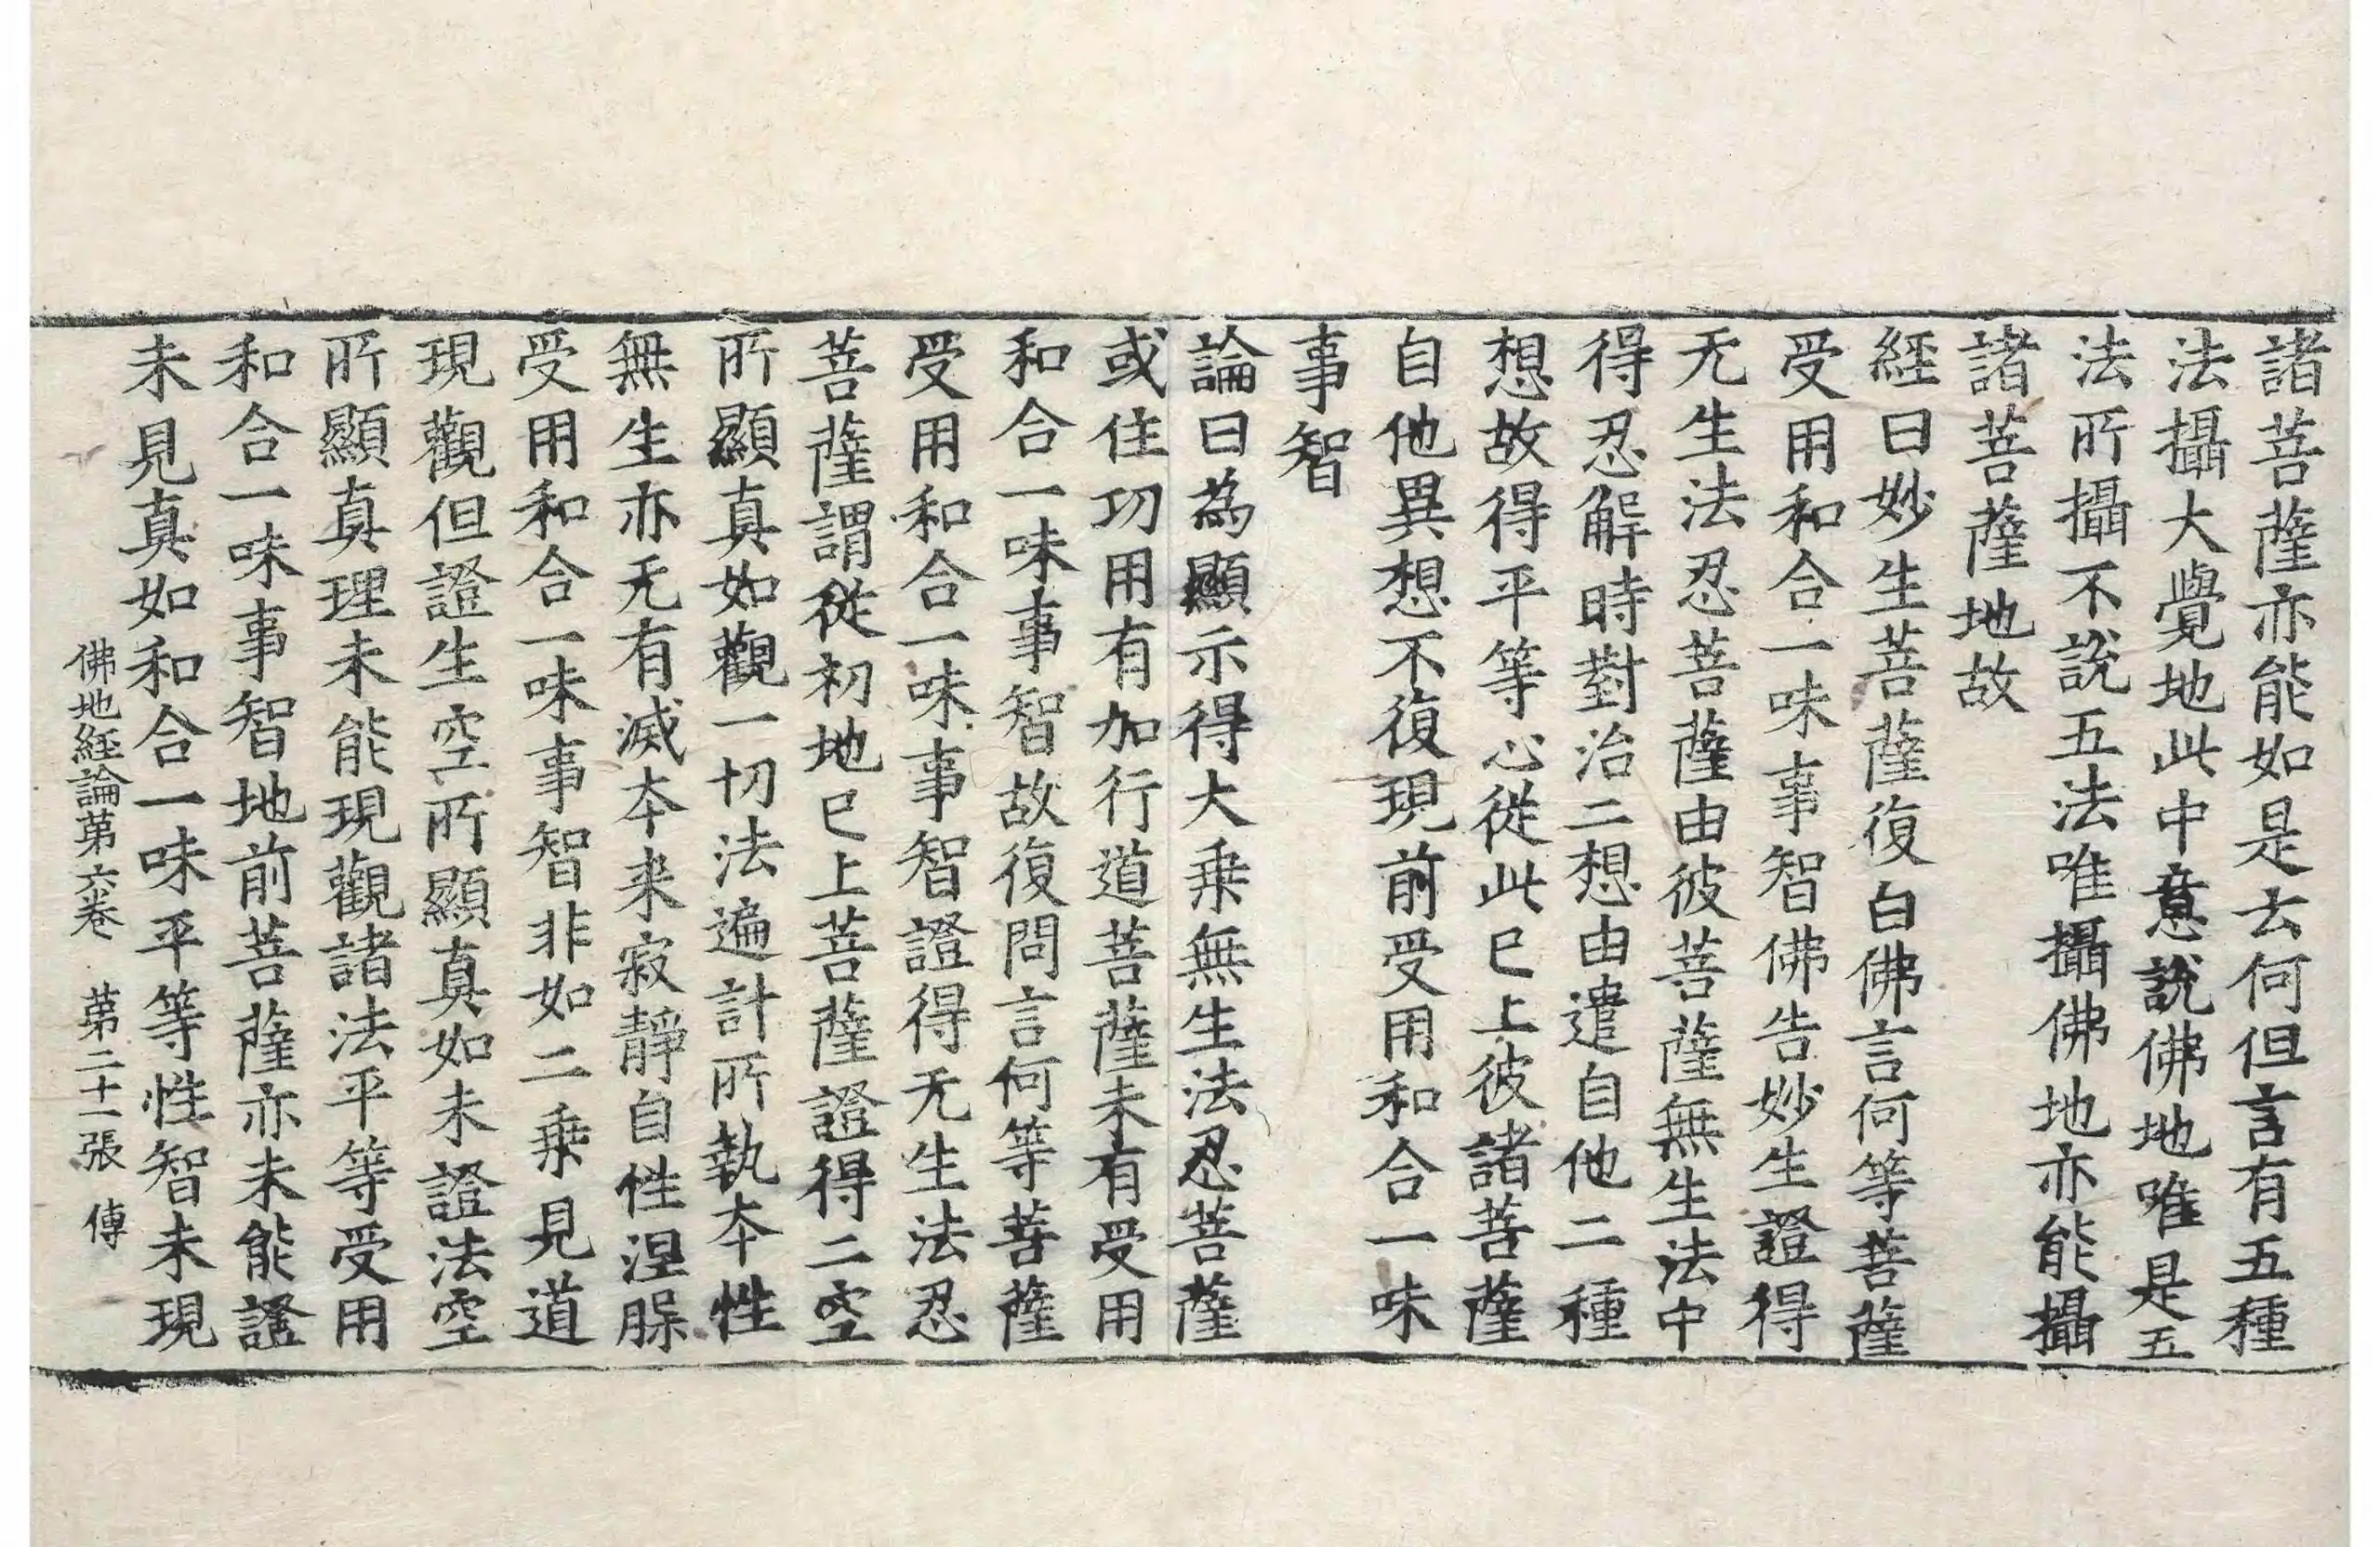 諸菩薩亦能如是云何但言有五種
法攝大覺地此中意說佛地唯是五
法所攝不說五法唯攝佛地亦能攝
諸菩薩地故
經曰妙生菩薩復白佛言何等菩薩
受用和合一味事智佛告妙生證得
无生法忍菩薩由彼菩薩無生法中
得忍解時對治二想由遣自他二種
想故得平等心從此已上彼諸菩薩
自他異想不復現前受用和合一味
事智
論曰為顯示得大乗無生法忍菩薩
或住功用有加行道菩薩未有受用
和合一味事智故復問言何等菩薩
受用和合一味事智證得无生法忍
菩薩謂從初地已上菩薩證得二空
所顯真如觀一切法遍計所執夲性
無生亦无有滅夲来寂靜自性涅槃
受用和合一味事智非如二乗見道
現觀但證生空所顯真如未證法空
所顯真理未能現觀諸法平等受用
和合一味事智地前菩薩亦未能證
未見真如和合一味平等性智未現
佛地經論苐六卷　苐二十一張　傅